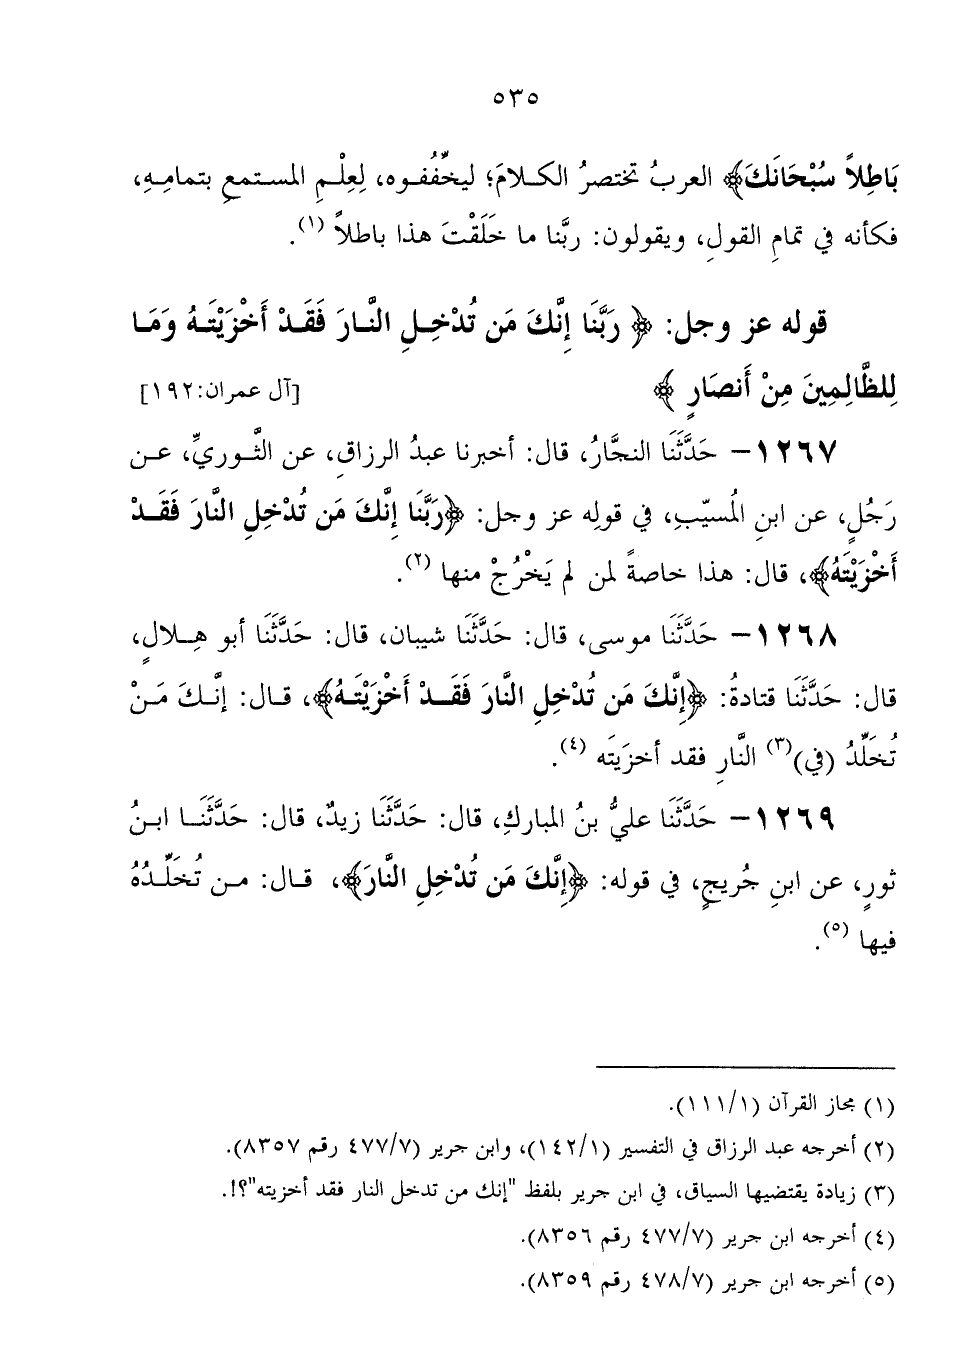 ٥٣٥
بَاطِلاً سُبْحَانَكَ﴾ العربُ تختصرُ الكلامَ؛ ليخفِّفُوه، لِعِلْمِ المستمعِ بتمامِهِ،
فكأنه في تمامِ القولِ، ويقولون: ربَّنا ما خَلَقْتَ هذا باطلاً (١).
قوله عز وجل: ﴿ رَبَّنَا إِنَّكَ مَن تُدْخِلِ النَّارَ فَقَدْ أَخْزَيْتَهُ وَمَا
لِلظَّالِمِينَ مِنْ أَنصَارٍ ﴾ [آل عمران:١٩٢]
١٢٦٧- حَدَّثَنَا النجَّارُ، قال: أخبرنا عبدُ الرزاقِ، عن الثَّوريِّ، عن
رَجُلٍ، عن ابنِ المُسيّبِ، في قولِه عز وجل: ﴿رَبَّنَا إِنَّكَ مَن تُدْخِلِ النَّارَ فَقَدْ
أَخْزَيْتَهُ﴾، قال: هذا خاصةً لمن لم يَخْرُجْ منها (٢).
١٢٦٨- حَدَّثَنَا موسى، قال: حَدَّثَنَا شيبان، قال: حَدَّثَنَا أبو هِلالٍ،
قال: حَدَّثَنَا قتادةُ: ﴿إِنَّكَ مَن تُدْخِلِ النَّارَ فَقَدْ أَخْزَيْتَهُ﴾، قال: إنَّكَ مَنْ
تُخَلِّدُ (في)(٣) النَّارِ فقد أخزَيتَه (٤).
١٢٦٩- حَدَّثَنَا عليُّ بنُ المباركِ، قال: حَدَّثَنَا زيدٌ، قال: حَدَّثَنَا ابنُ
ثورٍ، عن ابنِ جُريجٍ، في قوله: ﴿إِنَّكَ مَن تُدْخِلِ النَّارَ﴾، قال: من تُخَلِّدُهُ
فيها (٥).
(١) مجاز القرآن (١١١/١).
(٢) أخرجه عبد الرزاق في التفسير (١٤٢/١)، وابن جرير (٤٧٧/٧ رقم ٨٣٥٧).
(٣) زيادة يقتضيها السياق، في ابن جرير بلفظ "إنك من تدخل النار فقد أخزيته"؟!.
(٤) أخرجه ابن جرير (٤٧٧/٧ رقم ٨٣٥٦).
(٥) أخرجه ابن جرير (٤٧٨/٧ رقم ٨٣٥٩).